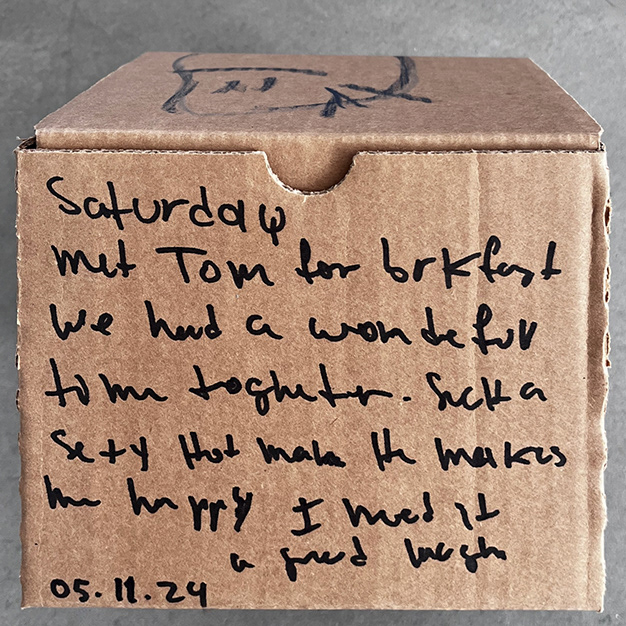 Saturday
met Tom for brkfast
We had a wondeful
time togheter. Such a
Sexy Hot male He makes
me happy I need it
a good laugh
05.11.24